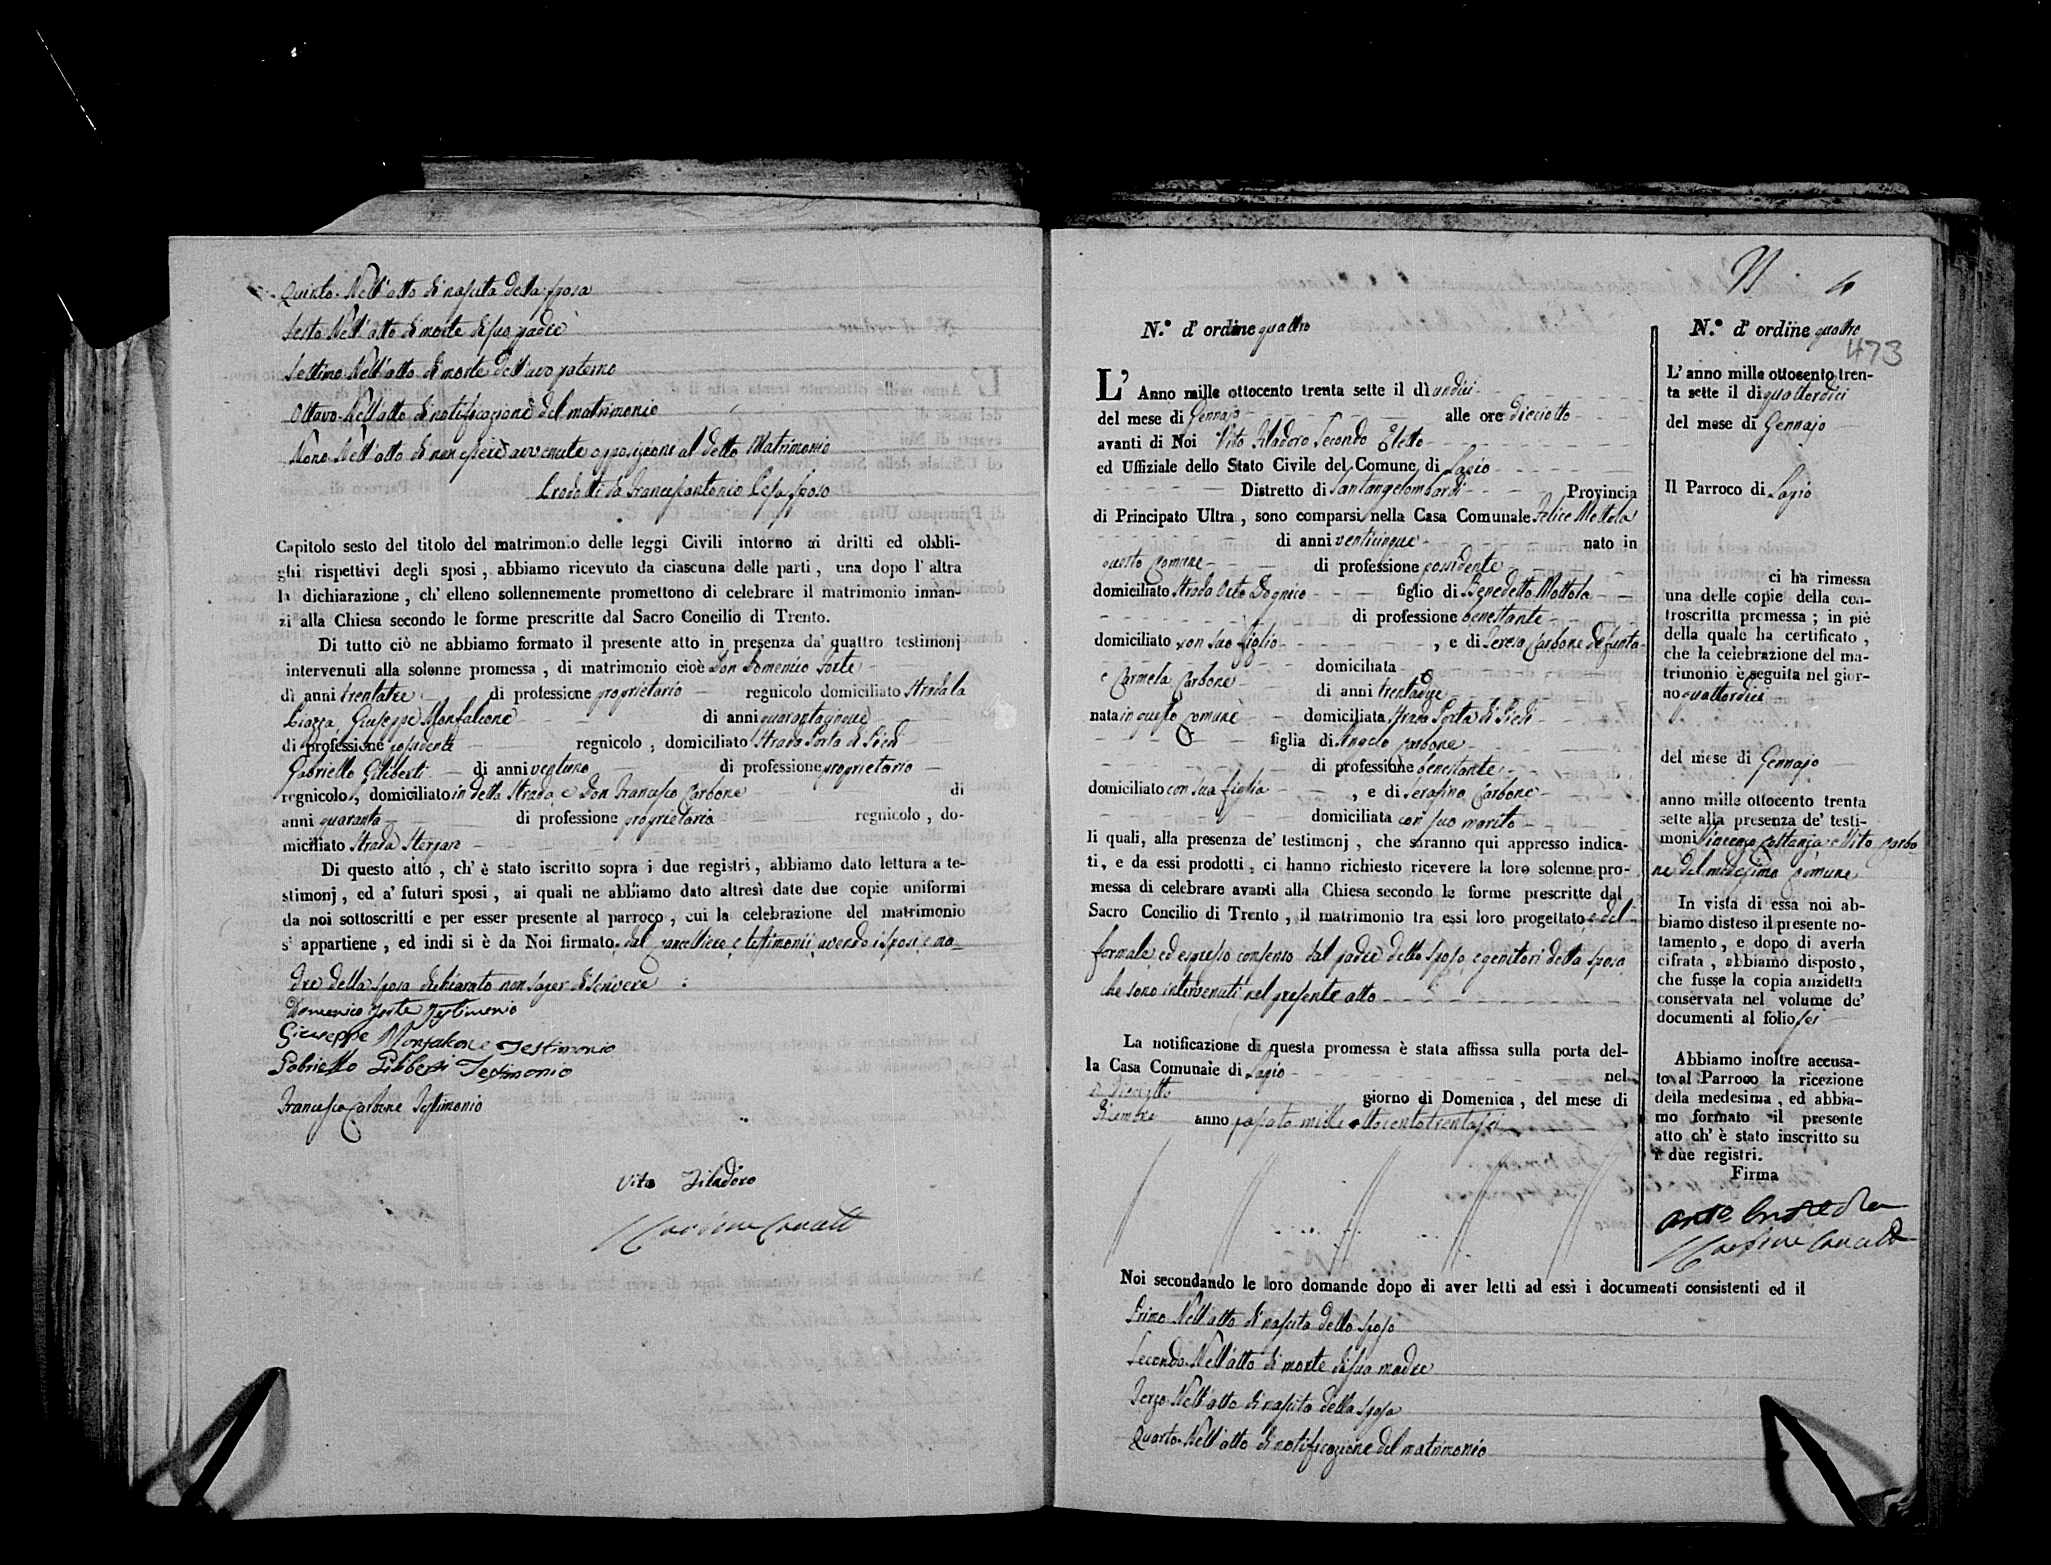 Quinto. Nell'atto di nascita della sposa
Sesto Nell'atto di morte di suo padre
Settimo Nell'atto di morte dell'avo paterno
Ottavo Nell'atto di notificazione del matrimonio
Nono Nell'atto di non essere avvenute opposizione al detto Matrimonio
Prodotti da Francescantonio sposo
Capitolo sesto del titolo del matrimonio delle leggi Civili intorno ai dritti ed obbli-
ghi rispettivi degli sposi, abbiamo ricevuto da ciascuna delle parti, una dopo l'altra
la dichiarazione, ch' elleno sollennemente promettono di celebrare il matrimonio innan-
zi alla Chiesa secondo le forme prescritte dal Sacro Concilio di Trento.
Di tutto ciò ne abbiamo formato il presente atto in presenza da' quattro testimonj
intervenuti alla solenne promessa, di matrimonio cioè Don Domenico Forte
di anni trentatre di professione proprietario regnicolo domiciliato Strada la
Piazza Giuseppe Monfalcone di anni quarantacinque
di professione possidente regnicolo, domiciliato Strada Porta di Piedi
Gabriello Giliberti di anni ventuno di professione proprietario
regnicolo, domiciliato in detta Strada e Don Francesco Carbone di
anni quaranta di professione proprietario regnicolo, do-
miciliato Strada
Di questo atto, ch' è stato iscritto sopra i due registri, abbiamo dato lettura a te-
stimonj, ed a' futuri sposi, ai quali ne abbiamo dato altresì date due copie uniformi
da noi sottoscritti e per esser presente al parroco, cui la celebrazione del matrimonio
s' appartiene, ed indi si è da Noi firmato, dal cancelliere e testimonii avendo i sposi e ma-
dre della sposa dichiarato non saper di scrivere
Domenico Forte Testimonio
Giuseppe Monfalcone Testimonio
Gabriello Giliberti Testimonio
Francesco Carbone Testimonio
Vito Filadoro
N. 4
N.° d' ordine quattro
L' Anno mille ottocento trenta sette il dì undici
del mese di Gennajo alle ore dieciotto
avanti di Noi Vito Filadoro Secondo Eletto
ed Uffiziale dello Stato Civile del Comune di Lagio
Distretto di Santangelombardi Provincia
di Principato Ultra, sono comparsi nella Casa Comunale Felice Mottola
di anni venticinque nato in
questo Comune di professione possidente
domiciliato Strada Orto figlio di Benedetto Mottola
di professione benestante
domiciliato con suo figlio, e di Teresa Carbone defunta
domiciliata
e Carmela Carbone di anni trentadue
nata in questo Comune domiciliata Strada Porta di Piedi
figlia di Angelo Carbone
di professione benestante
domiciliato con sua figlia, e di Serafina Carbone
domiciliata con suo marito
li quali, alla presenza de' testimonj, che saranno qui appresso indica-
ti, e da essi prodotti, ci hanno richiesto ricevere la loro solenne pro-
messa di celebrare avanti alla Chiesa secondo le forme prescritte dal
Sacro Concilio di Trento, il matrimonio tra essi loro progettato, e del
formale ed espresso consenso dal padre dello sposo, e genitori della sposa
che sono intervenuti nel presente atto
La notificazione di questa promessa è stata affissa sulla porta del-
la Casa Comunale di Lagio nel
dì dieciotto giorno di Domenica, del mese di
Dicembre anno passato mille ottocentotrentasei
Noi secondando le loro domande dopo di aver letti ad essi i documenti consistenti ed il
Primo Nell'atto di nascita dello sposo
Secondo. Nell'atto di morte di sua madre
Terzo Nell'atto di nascita della sposa
Quarto. Nell'atto di notificazione del matrimonio
N.° d' ordine quattro
473
L' anno mille ottocento tren-
ta sette il di quattordici
del mese di Gennajo
Il Parroco di Lagio
ci ha rimessa
una delle copie della con-
troscritta promessa; in piè
della quale ha certificato,
che la celebrazione del ma-
trimonio è seguita nel gior-
no quattordici
del mese di Gennajo
anno mille ottocento trenta
sette alla presenza de' testi-
moni Vincenzo Cottanja e Vito Carbo-
ne del medesimo Comune
In vista di essa noi ab-
biamo disteso il presente no-
tamento, e dopo di averla
cifrata, abbiamo disposto,
che fusse la copia anzidetta
conservata nel volume de'
documenti al folio sei
Abbiamo inoltre accusa-
to al Parroco la ricezione
della medesima, ed abbia-
mo formato il presente
atto ch' è stato inscritto su
i due registri.
Firma